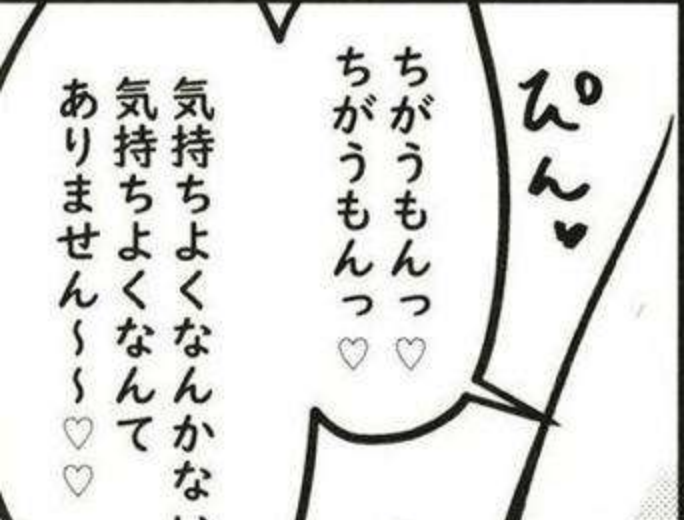 ぴん♥
ちがうもんっ♡
ちがうもんっ♡
気持ちよくなんかな
気持ちよくなんて
ありません～～♡♡